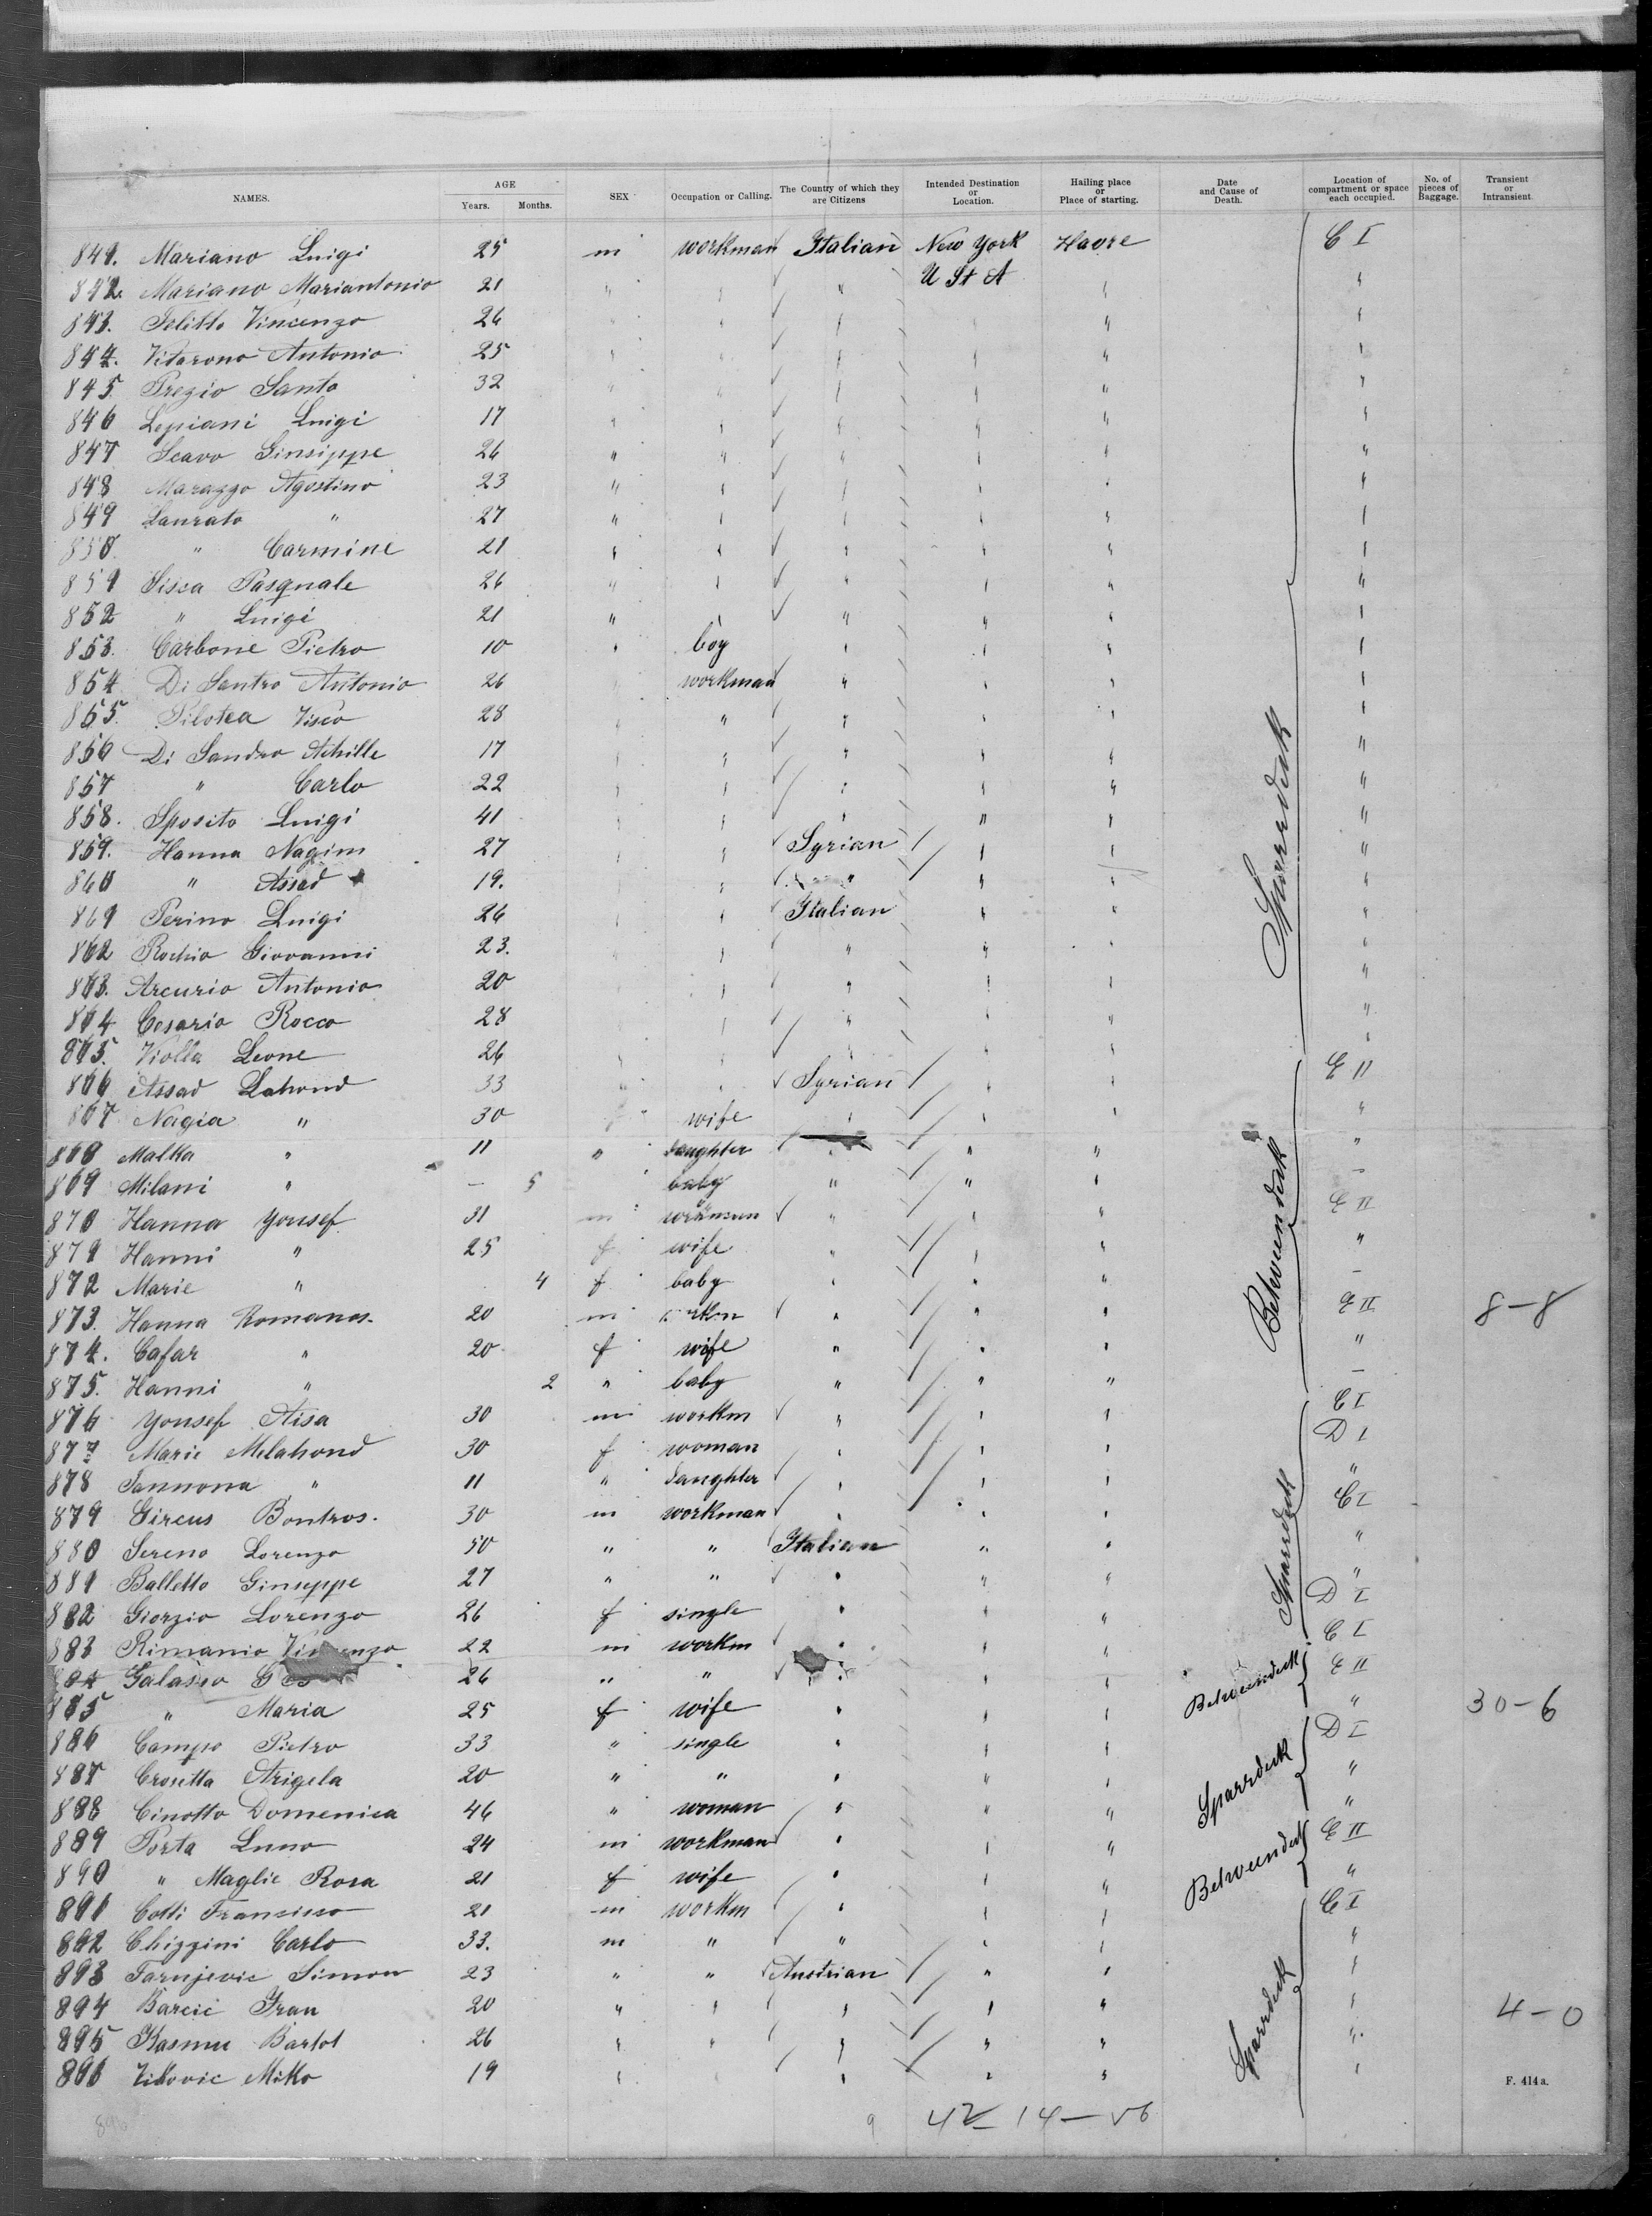 NAMES. AGE Years. Months. SEX Occupation or Calling. The Country of which they are Citizens Intended Destination or Location. Hailing place or Place of starting. Date and Cause of Death. Location of compartment or space each occupied. No. of pieces of Baggage. Transient or Intransient.
841. Mariano Luigi 25 m workman Italian New York Havre C I
842. Mariano Mariantonio 21 " " " U St A " "
843. Politto Vincenzo 26 " " " " " "
844. Vitarono Antonio 25 " " " " " "
845. Pregio Santo 32 " " " " " "
846 Lepiani Luigi 17 " " " " " "
847 Scavo Giusippe 26 " " " " " "
848 Marazzo Agostino 23 " " " " " "
849 Laurato " 27 " " " " " "
850. " Carmine 21 " " " " " "
851 Sisca Pasquale 26 " " " " " "
852 " Luigi 21 " " " " " "
853. Carbone Pietro 10 " boy " " " "
854 Di Santro Antonio 26 " workman " " " "
855. Pilotea Visco 28 " " " " " "
856 Di Sandro Achille 17 " " " " " "
857 " Carlo 22 " " " " " "
858. Sposito Luigi 41 " " " " " "
859. Hanna Nagim 27 " " Syrian " " Sparrdeck "
860 " Assad 19. " " " " " "
861 Perino Luigi 26 " " Italian " " "
862 Rochio Giovanni 23. " " " " " "
863. Arcurio Antonio 20 " " " " " "
864 Cesario Rocco 28 " " " " " "
865. Violla Leone 26 " " " " " "
866 Assad Lahoud 33 " " Syrian " " E II
867 Nagia " 30 f wife " " " "
868 Malka " 11 " daughter " " " "
869 Milani " – 5 baby " " " –
870 Hanna Yousef 31 m workman " " " Betweendeck E II
871 Hanni " 25 f wife " " " "
872 Marie " 4 f baby " " " –
873. Hanna Romanos. 20 m workm " " " E II 8–8
874. Cafar " 20 f wife " " " "
875. Hanni " 2 " baby " " " –
876 Yousef Aisa 30 m workm " " " C I
877 Marie Melahoud 30 f woman " " " D I
878 Jannona " 11 " daughter " " " "
879 Gircus Bontros. 30 m workman " " " C I
880 Sereno Lorenzo 50 " " Italian " " Sparrdeck "
881 Balletto Giuseppe 27 " " " " " "
882 Giorgio Lorenzo 26 f single " " " D I
883 Rimanio Vincenzo 22 m workm " " " C I
884 Galasso 26 " " " " " Betweendeck E II
885 " Maria 25 f wife " " " " 30–6
886 Campo Pietro 33 " single " " " D I
887 Crosetta Arigela 20 " " " " " Sparrdeck "
888 Cinotto Domenica 46 " woman " " " "
889 Porta Luno 24 m workman " " " Betweendeck E II
890 " Maglie Rosa 21 f wife " " " "
891 Cotti Francisco 21 m workm " " " C I
892 Chizzini Carlo 33. m " " " " "
893 Farnjevic Simon 23 " " Austrian " " "
894 Barcic Fran 20 " " " " " Sparrdeck " 4–0
895 Kasmu Bartol 26 " " " " " "
896 Vidovic Miko 19 " " " " " "
F. 414a.
896 9 42 14–56